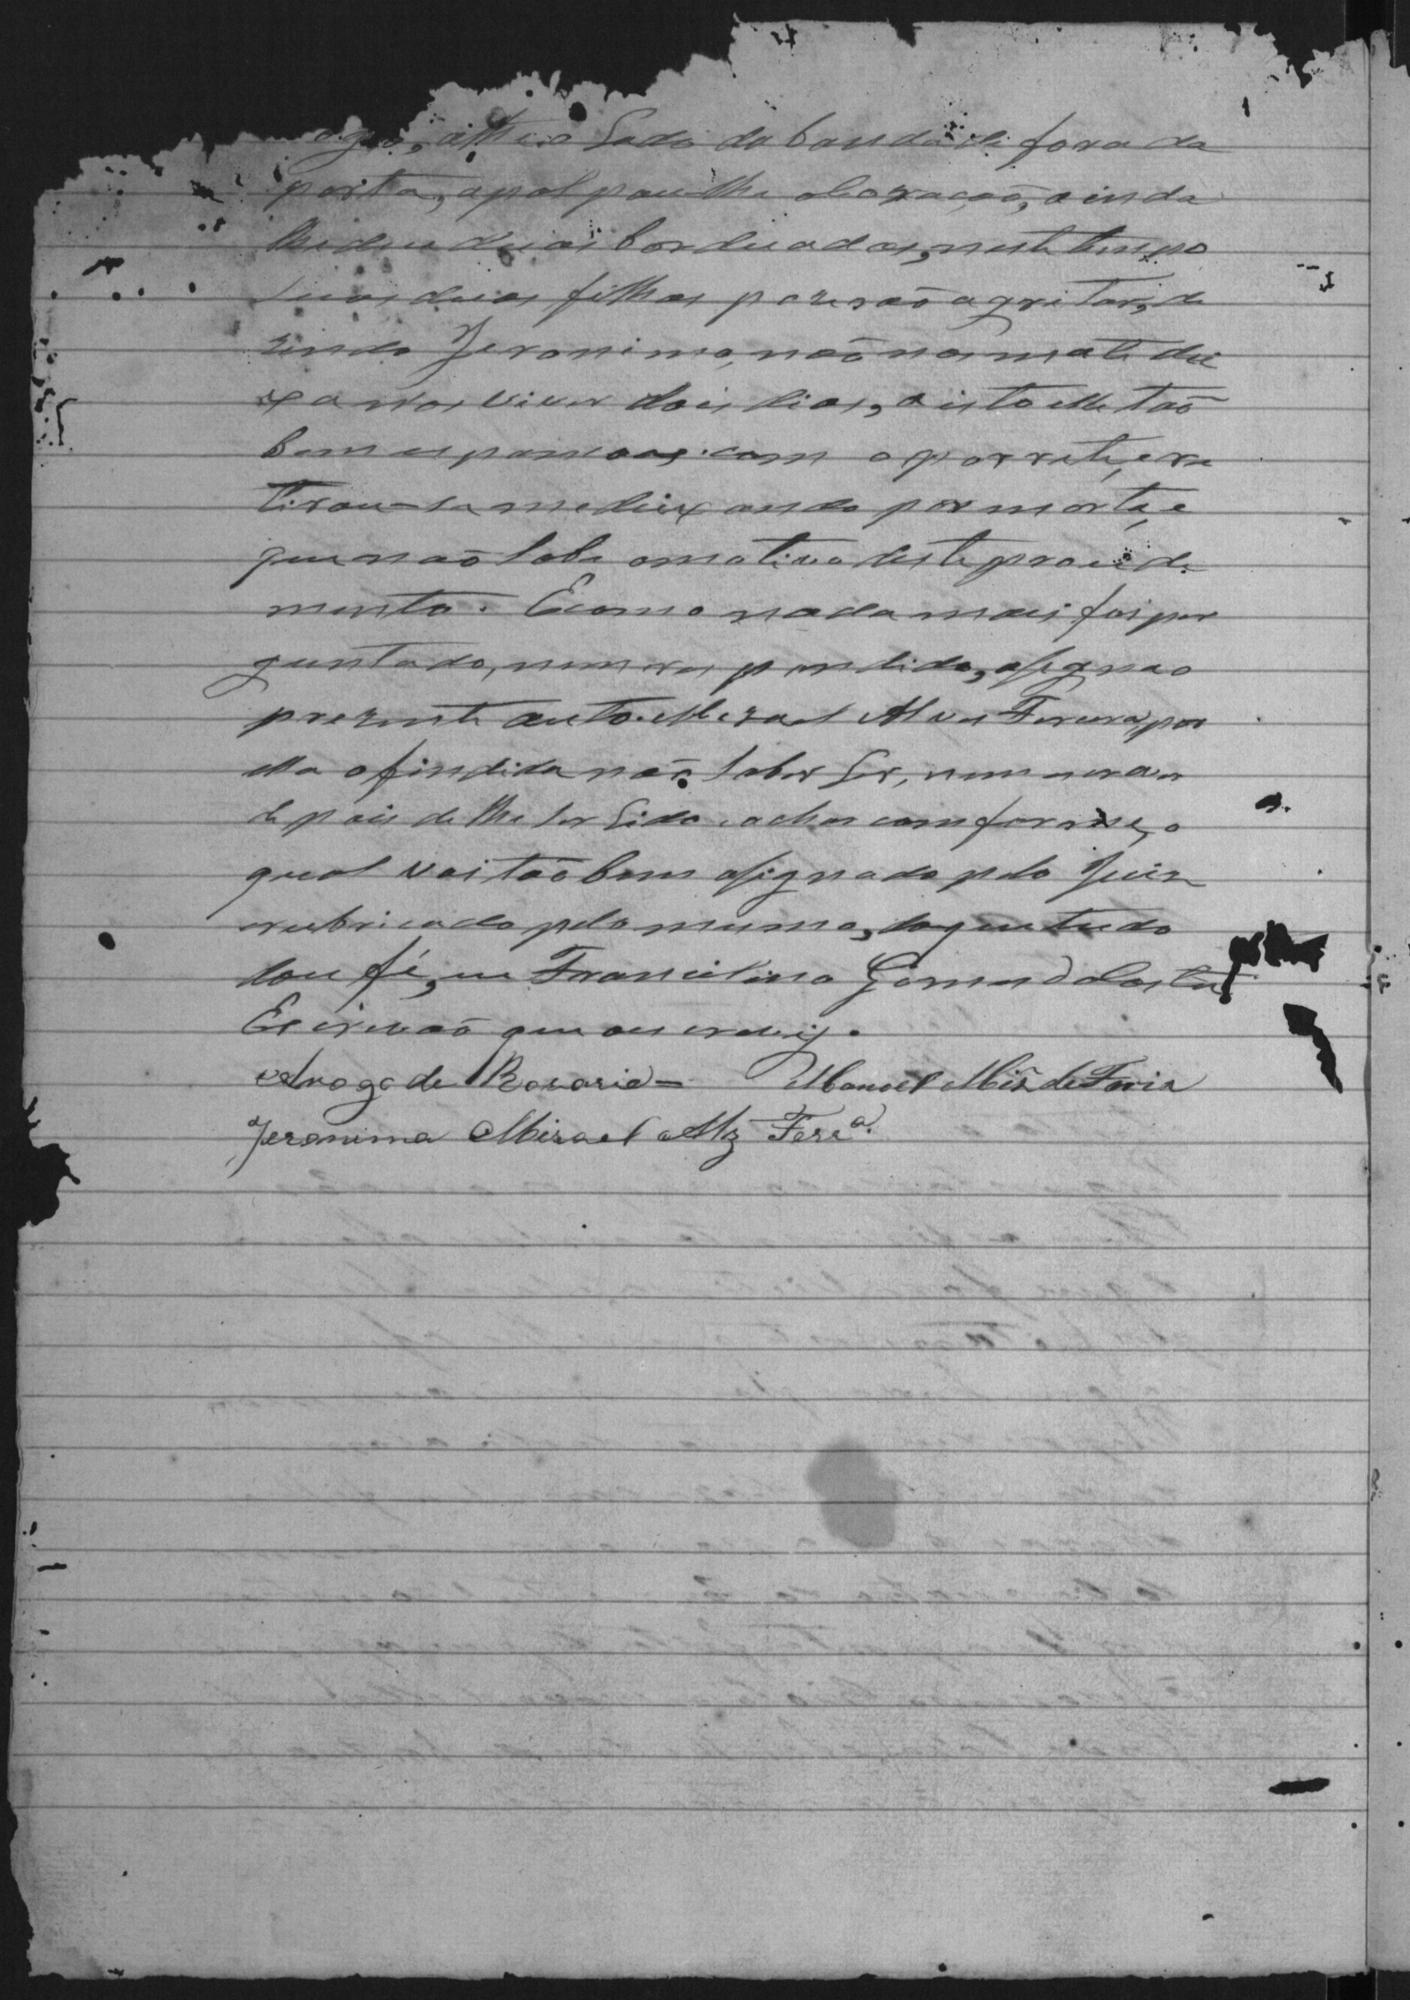 lado da banda de fora da
porta, apalpou lhe o coração, ainda
lhe deu duas borduadas, neste tempo
suas duas filhas pozerão a gritar, di
zendo Jeronimo, não nos mate dei
xa nos viver dois dias, a isto elle tão
bem espancou, com o porrete, e re
tirou-se me deixando por morta, e
que não sabe o motivo deste procede
mento. E como nada mais foi per
guntado, nem respondido, assigna o
prezente auto Mizael Alves Ferreira, por
ella ofindida não saber ler, nem escrever
depois de lhe ser lido e achar comforme, o
qual vai tão bem assignado pelo Juiz
e rubricado pelo mesmo, do que tudo
dou fé, eu Francilino Gomes da Costa
Escrivão que escrevy.
Arogo de Rozaria = Manoel Miz de Faria
Jeronima Mizael Alz Ferrª.